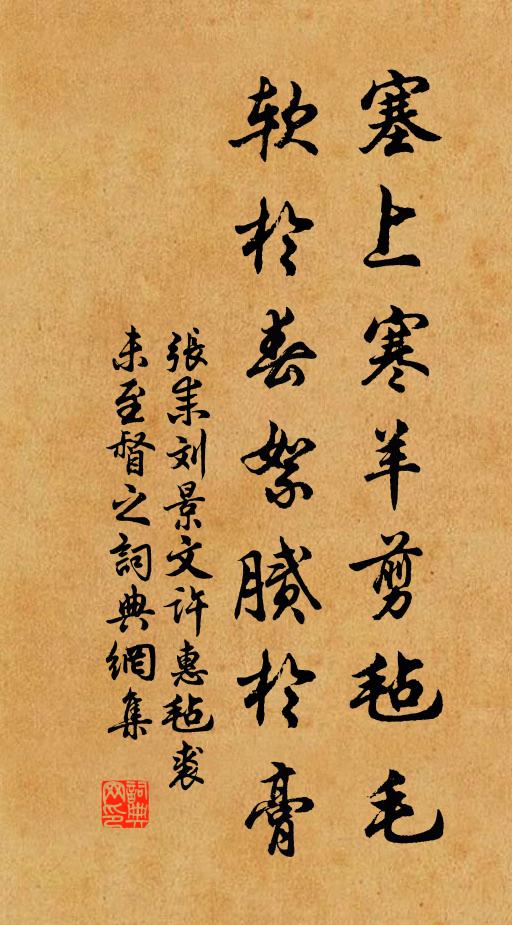 塞上寒羊剪毡毛
软於春絮腻於膏
張耒刘景文許惠毡裘
未至督之詞典網集
詞典網印